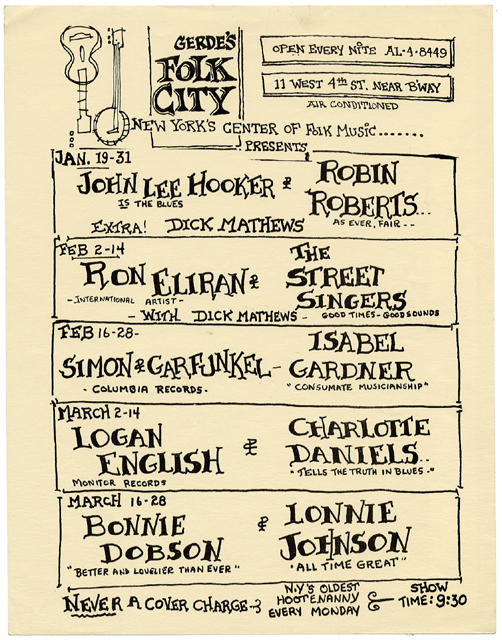 GERDE'S
FOLK
CITY
OPEN EVERY NITE AL·4·8449
11 WEST 4th ST. NEAR B'WAY
AIR CONDITIONED
NEW YORK'S CENTER OF FOLK MUSIC.......
PRESENTS
JAN. 19-31
JOHN LEE HOOKER &
IS THE BLUES
ROBIN
ROBERTS...
AS EVER, FAIR - -
EXTRA! DICK MATHEWS
FEB 2-14
RON ELIRAN &
-INTERNATIONAL ARTIST-
THE
STREET
SINGERS
GOOD TIMES-GOOD SOUNDS
- WITH DICK MATHEWS -
FEB 16-28-
SIMON & GARFUNKEL-
- COLUMBIA RECORDS-
ISABEL
GARDNER
"CONSUMATE MUSICIANSHIP"
MARCH 2-14
LOGAN
ENGLISH
MONITOR RECORDS
&
CHARLOTTE
DANIELS..
"TELLS THE TRUTH IN BLUES."
MARCH 16-28
BONNIE
DOBSON
"BETTER AND LOVELIER THAN EVER"
&
LONNIE
JOHNSON
"ALL TIME GREAT"
NEVER A COVER CHARGE--
N.Y'S OLDEST
HOOTENANNY
EVERY MONDAY
&
SHOW
TIME: 9:30